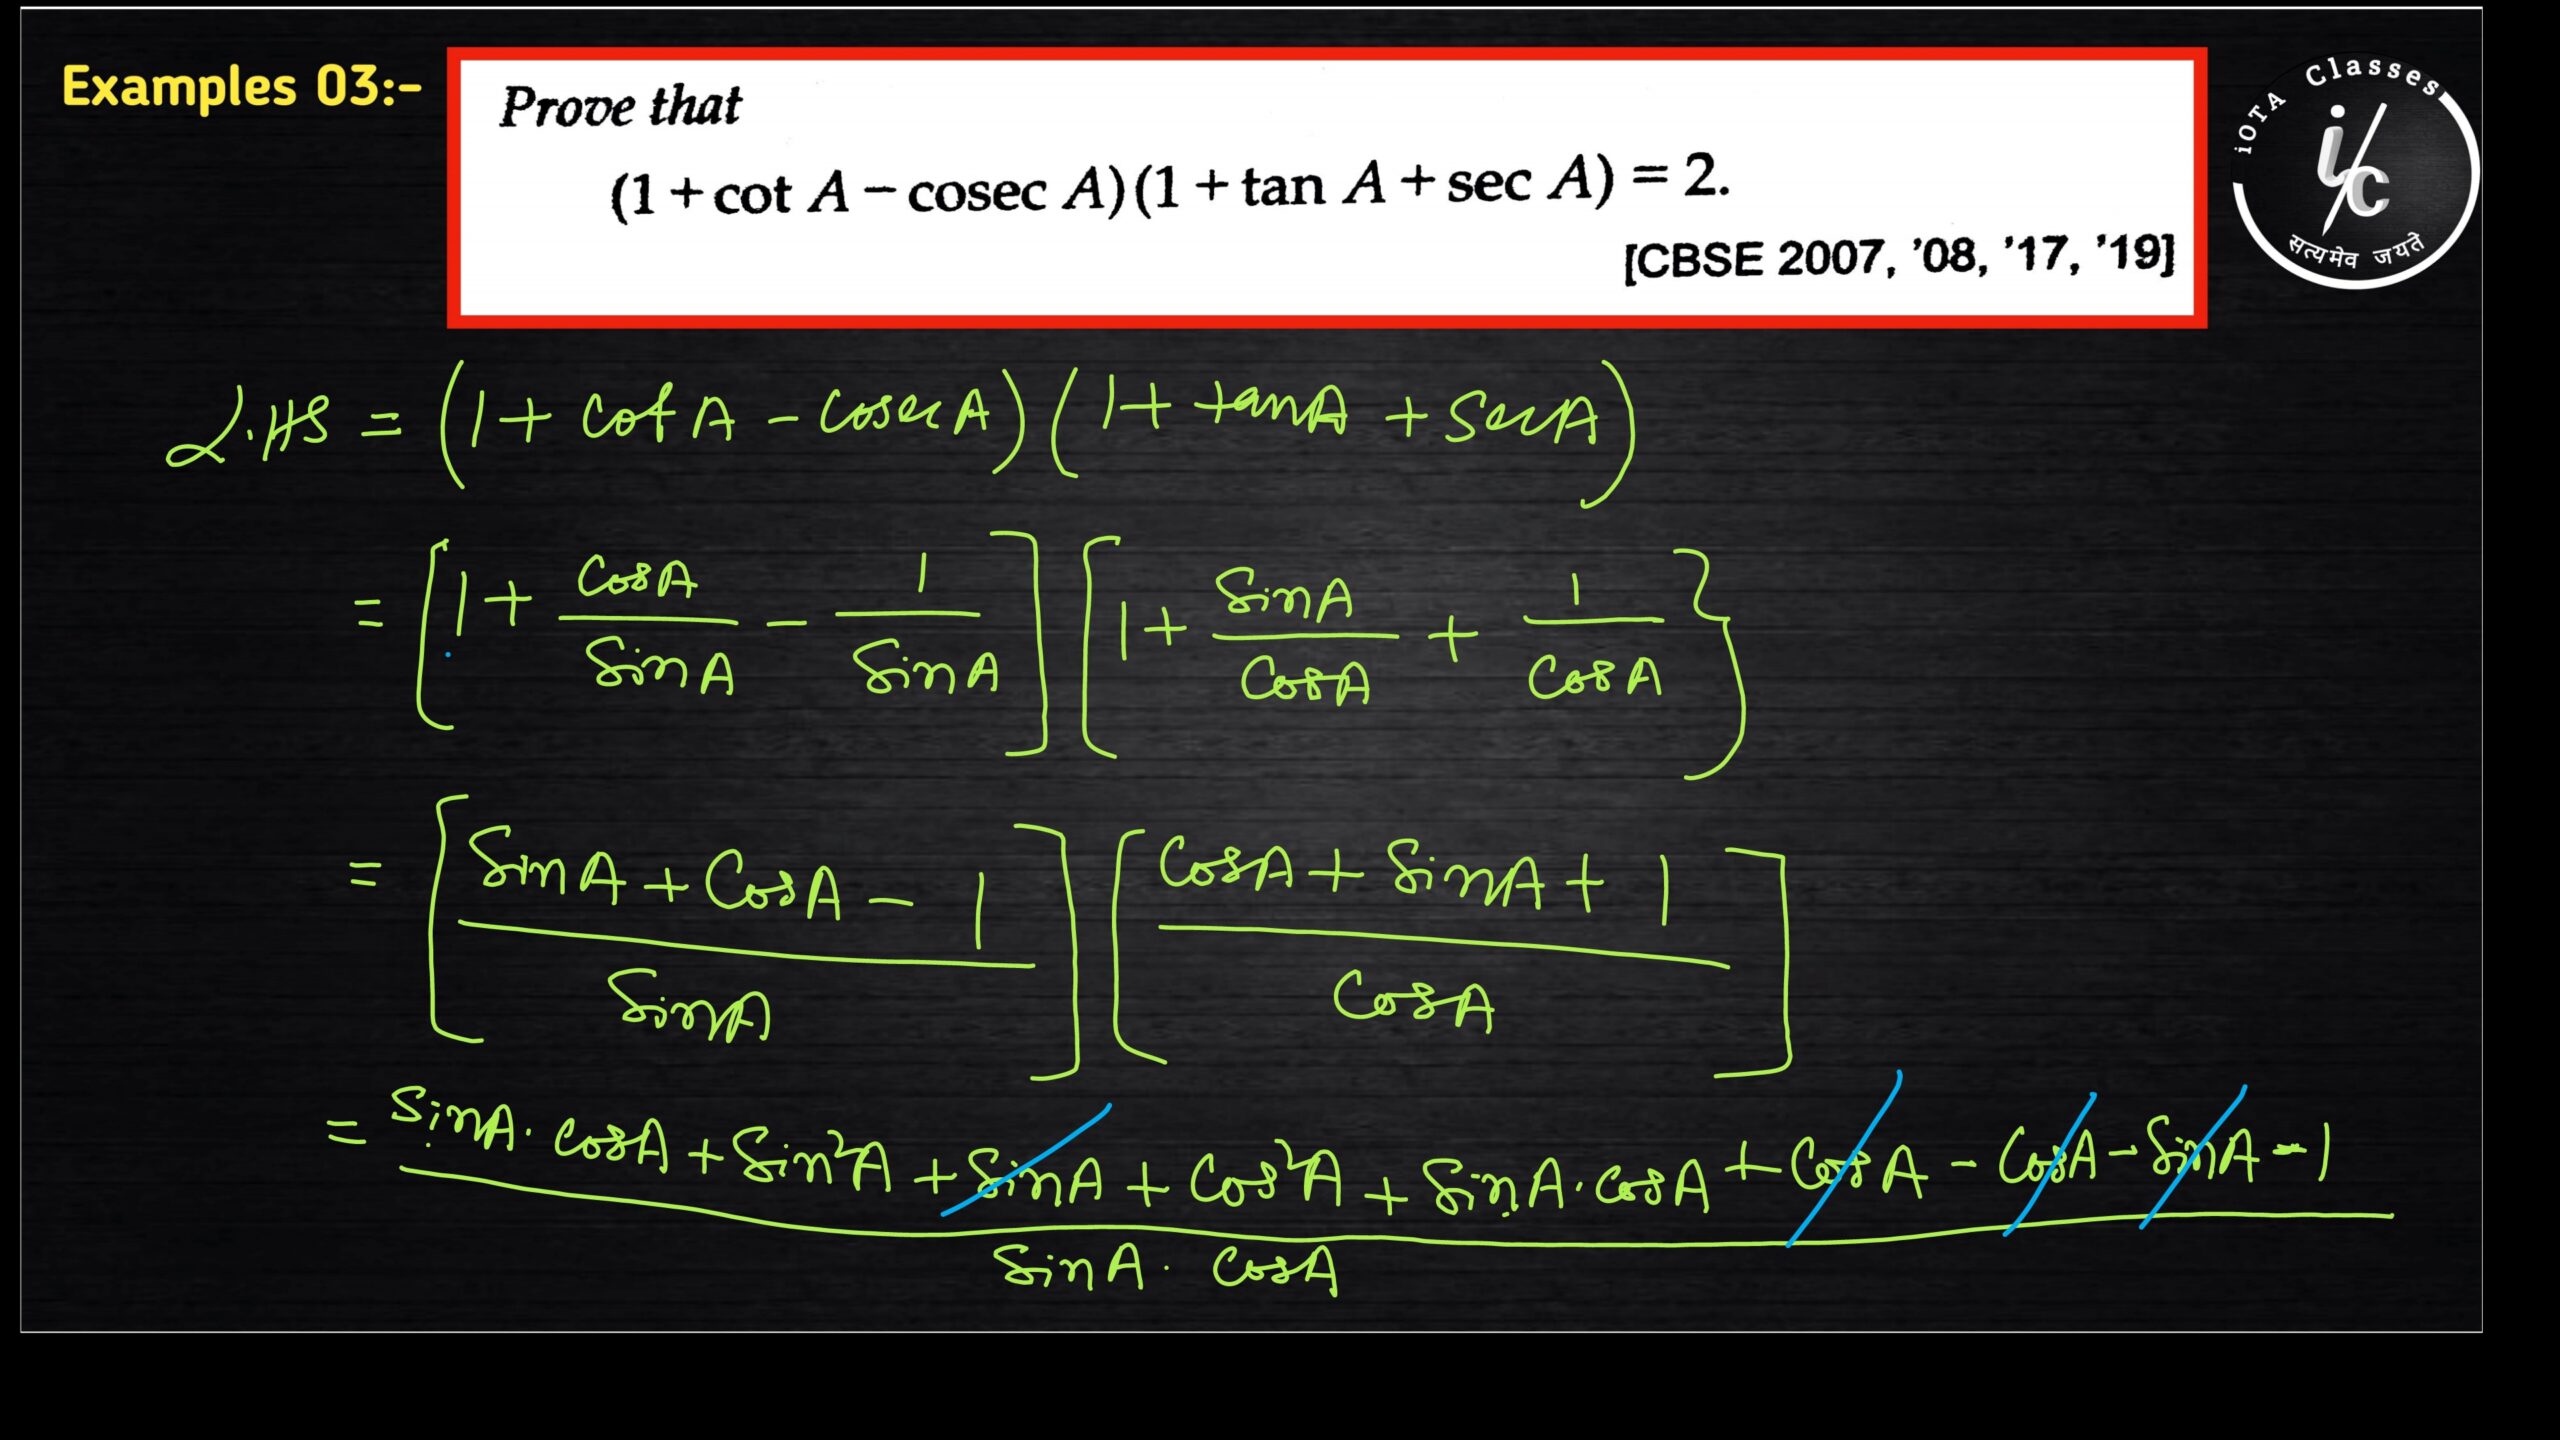 Examples 03:-
Prove that
(1 + cot A − cosec A)(1 + tan A + sec A) = 2.
[CBSE 2007, '08, '17, '19]
iOTA Classes
i/c
सत्यमेव जयते
L.HS = (1 + cot A - cosec A) (1 + tan A + Sec A)
= [1 + Cos A / Sin A - 1 / Sin A] [1 + Sin A / Cos A + 1 / Cos A}
= [Sin A + Cos A - 1 / Sin A] [Cos A + Sin A + 1 / Cos A]
= Sin A. Cos A + Sin²A + Sin A + Cos²A + Sin A. Cos A + Cos A - Cos A - Sin A - 1
Sin A. Cos A